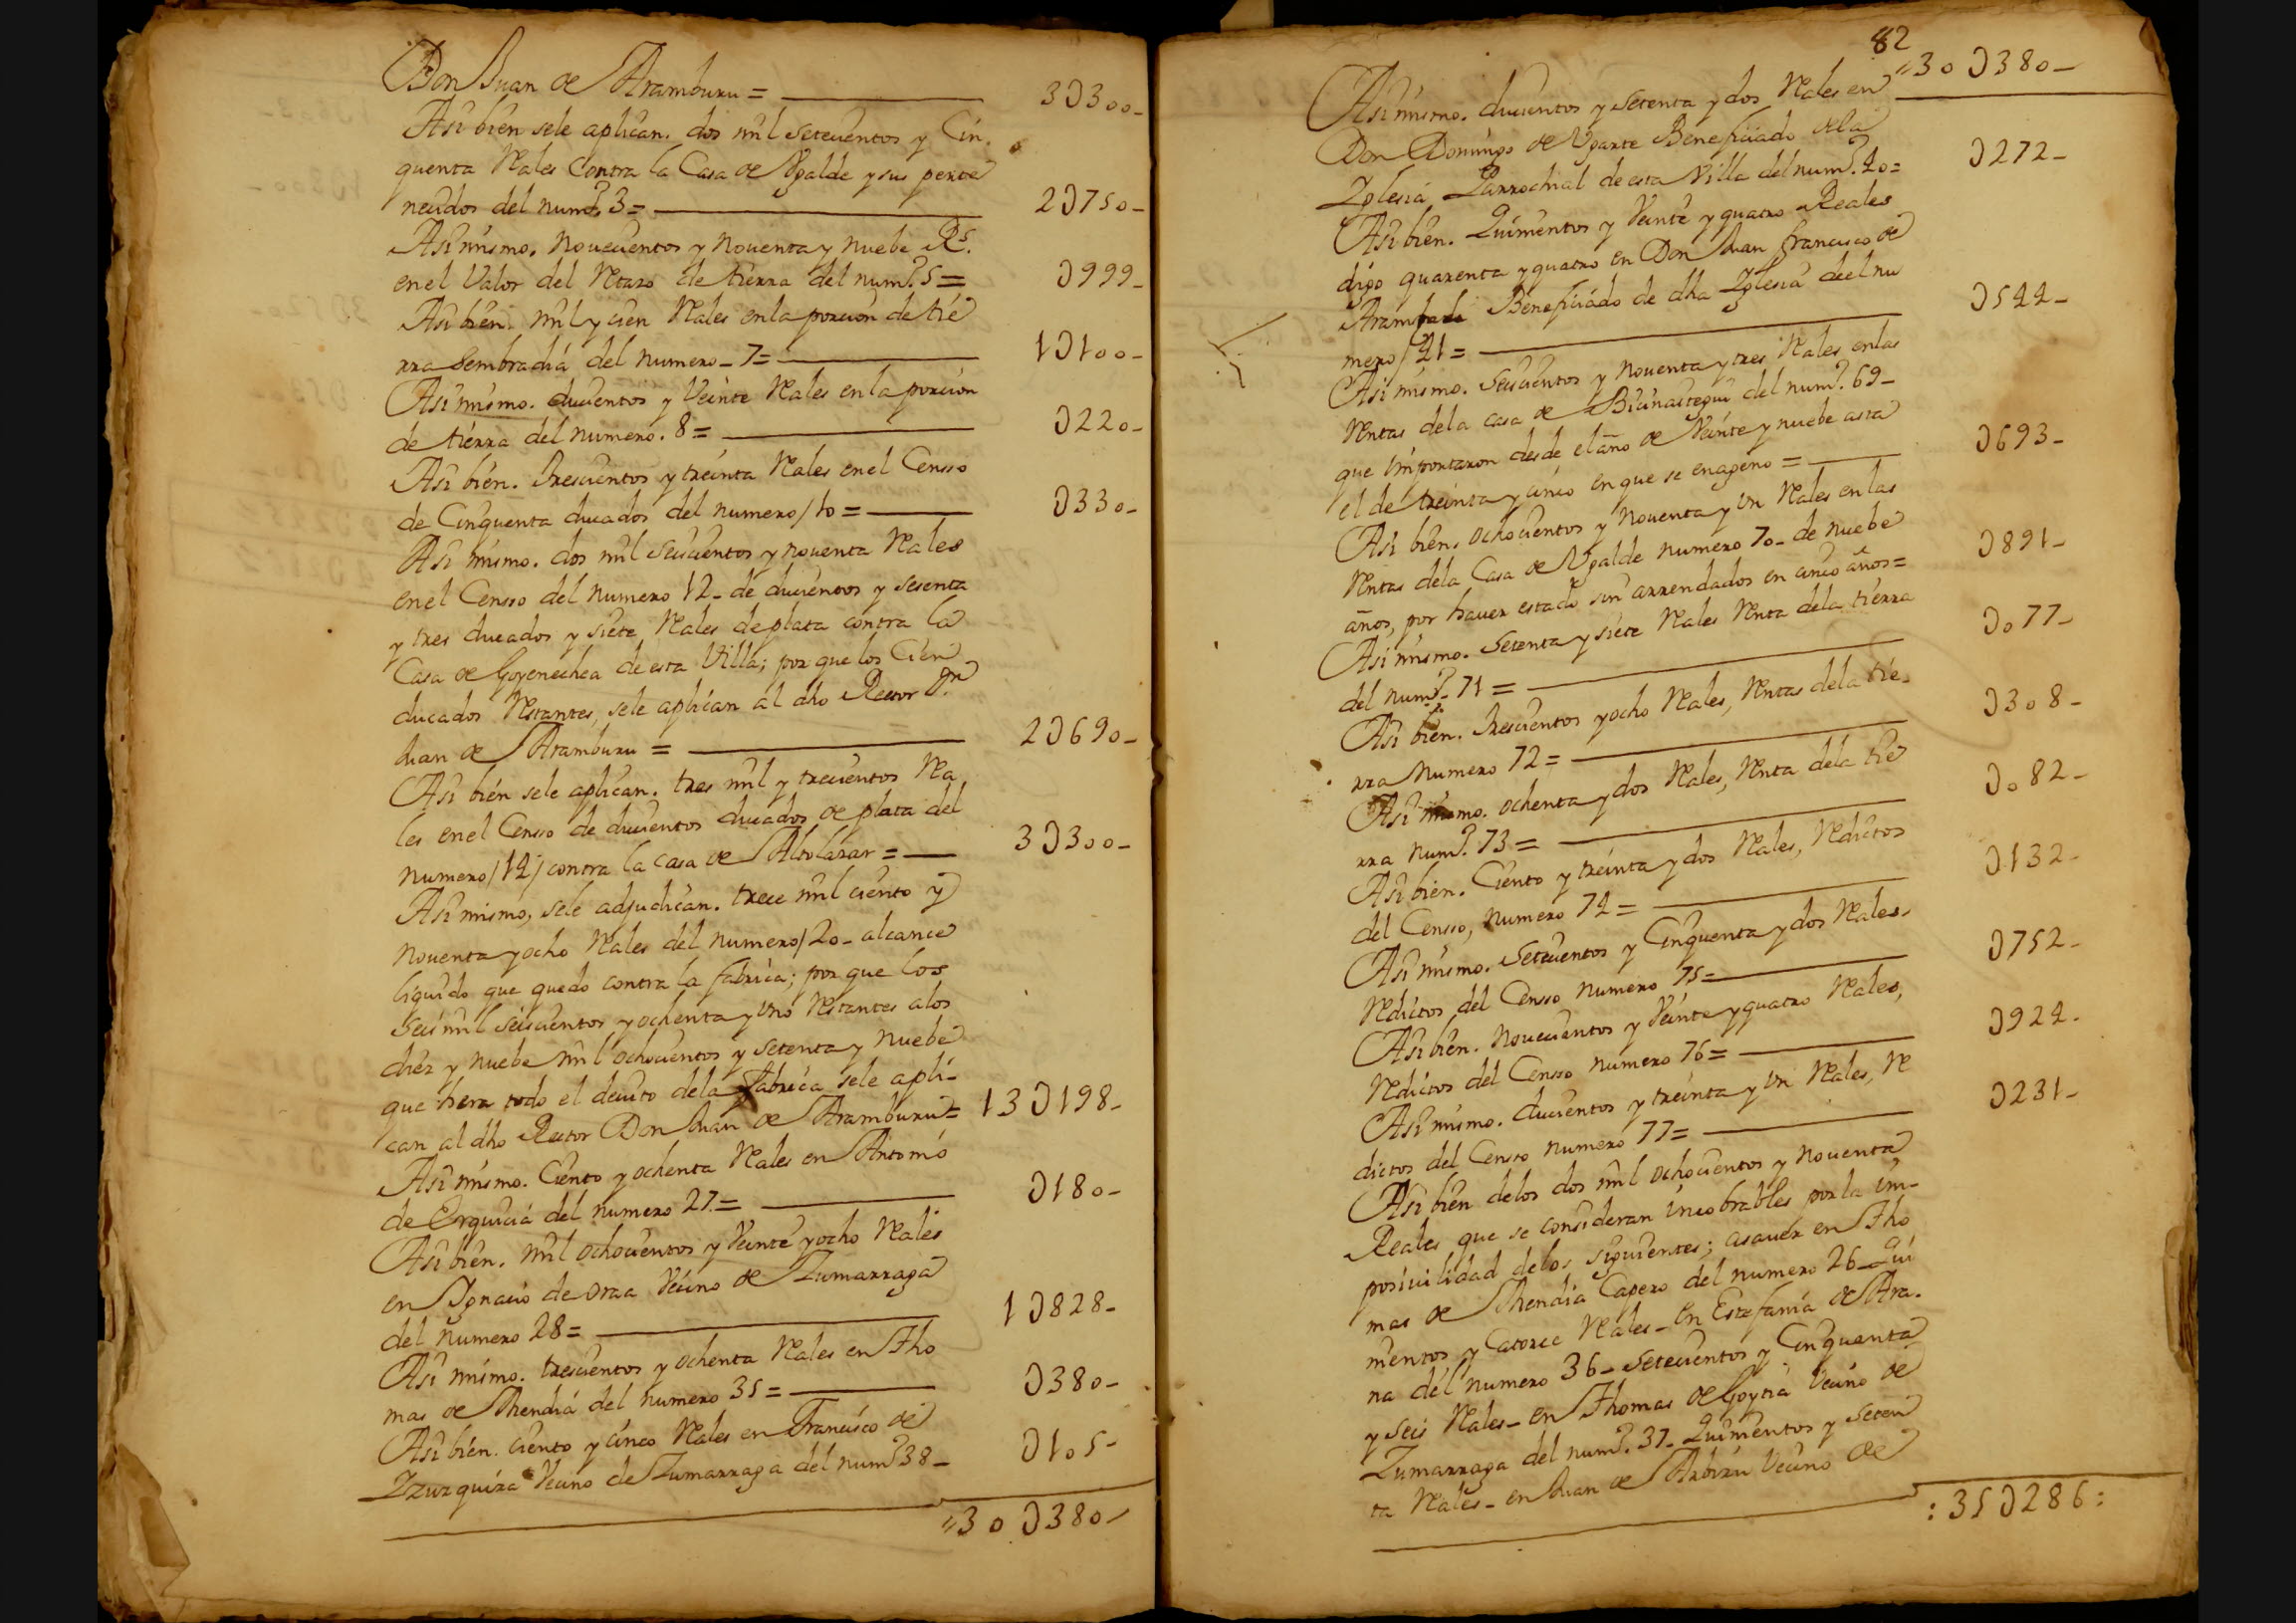 Don Juan de Aramburu = 3U300-
Asi bien sele aplican. dos mil Setecientos y Cin-
quenta Reales Contra la Casa de Ugalde y sus perte
necidos del num.º 3= 2U750-
Asi mismo. Novecientos y Noventa y nuebe R.s
en el Valor del Retazo de tierra del num.º 5= U999-
Asi bien. Mil y cien Reales en la porcion de tie
rra Sembradia del numero-7= 1U100-
Asi mismo. ducientos y Veinte Reales en la porcion
de tierra del numero. 8= U220-
Asi bien. Trescientos y treinta Reales en el Censso
de Cinquenta ducados del numero/10= U330-
Asi mismo. dos mil Seiscientos y noventa Reales
en el Censso del numero 12- de ducientos y sesenta
y tres ducados y siete Reales de plata contra la
Casa de Goyenechea de esta Villa; por que los Cien
ducados Restantes, sele aplican al dho Rector D.n
Juan de Aramburu = 2U690-
Asi bien sele aplican. tres mil y trecientos Rea
les en el Censso de ducientos ducados de plata del
numero/14/ contra la casa de Altolazar= 3U300-
Asi mismo, sele adjudican. trece mil ciento y
noventa y ocho Reales del numero/20- alcance
liquido que quedo contra la fabrica; por que los
Seis mil seiscientos y ochenta y uno Restantes alos
diez y nuebe mil ochocientos y setenta y nuebe
que hera todo el devito dela Fabrica sele apli-
can al dho Rector Don Juan de Aramburu= 13U198-
Asi mismo. Ciento y ochenta Reales en Antonio
de Erguicia del numero 27.= U180-
Asi bien. Mil ochocientos y Veinte y ocho Reales
en Ignacio de oraa Vecino de Zumarraga
del numero 28= 1U828-
Asi mismo. trescientos y ochenta Reales en Tho
mas de Mendia del numero 35= U380-
Asi bien. ciento y cinco Reales en Francisco de
Yzurquiza Vecino de Zumarraga del num.º 38- U105-
30U380-
82
30U380-
Asi mismo. ducientos y Setenta y dos Reales en
Don Domingo de Ugarte Beneficiado dela
Yglesia Parrochial de esta Villa del num.º 40= U272-
Asi bien. Quinientos y Veinte y quatro Reales
digo quarenta y quatro en Don Juan francisco de
Beneficiado de dha Yglesia deel nu
mero/41= U544-
Asi mismo. Seiscientos y noventa y tres Reales, enlas
Rentas dela casa de del num.º 69-
que importaron desde el año de Veinte y nuebe asta
el de treinta y cinco en que se enageno = U693-
Asi bien. ochocientos y noventa y un Reales en las
Rentas dela Casa de Ugalde numero 70- de nuebe
años, por haver estado sin arrendados en cinco años= U891-
Asi mismo. Setenta y siete Reales Renta dela tierra
del num.º 71 = U077-
Asi bien. Trescientos y ocho Reales, Rentas dela tie-
rra Numero 72= U308-
Asi mismo. ochenta y dos Reales, Renta dela tie
rra num.º 73= U082-
Asi bien. Ciento y treinta y dos Reales, Redictos
del Censso, numero 74= U132-
Asi mismo. Setecientos y Cinquenta y dos Reales.
Redictos del Censso numero 75= U752-
Asi bien. Novecientos y Veinte y quatro Reales,
Redictos del Censso numero 76= U924-
Asi mismo. ducientos y treinta y un Reales, Re
dictos del Censso numero 77= U231-
Asi bien delos dos mil ochocientos y noventa
Reales que se consideran incobrables por la im-
posivilidad delos siguientes; asaver en Tho
mas de Mendia Capero del numero 26- Qui
nientos y Catorce Reales- En Estefania de Ara-
na del numero 36- Setecientos y Cinquenta
y seis Reales- en Thomas de Goytia Vecino de
Zumarraga del num.º 37- Quinientos y Seten
ta Reales- en Juan de Vecino de
:35U286: